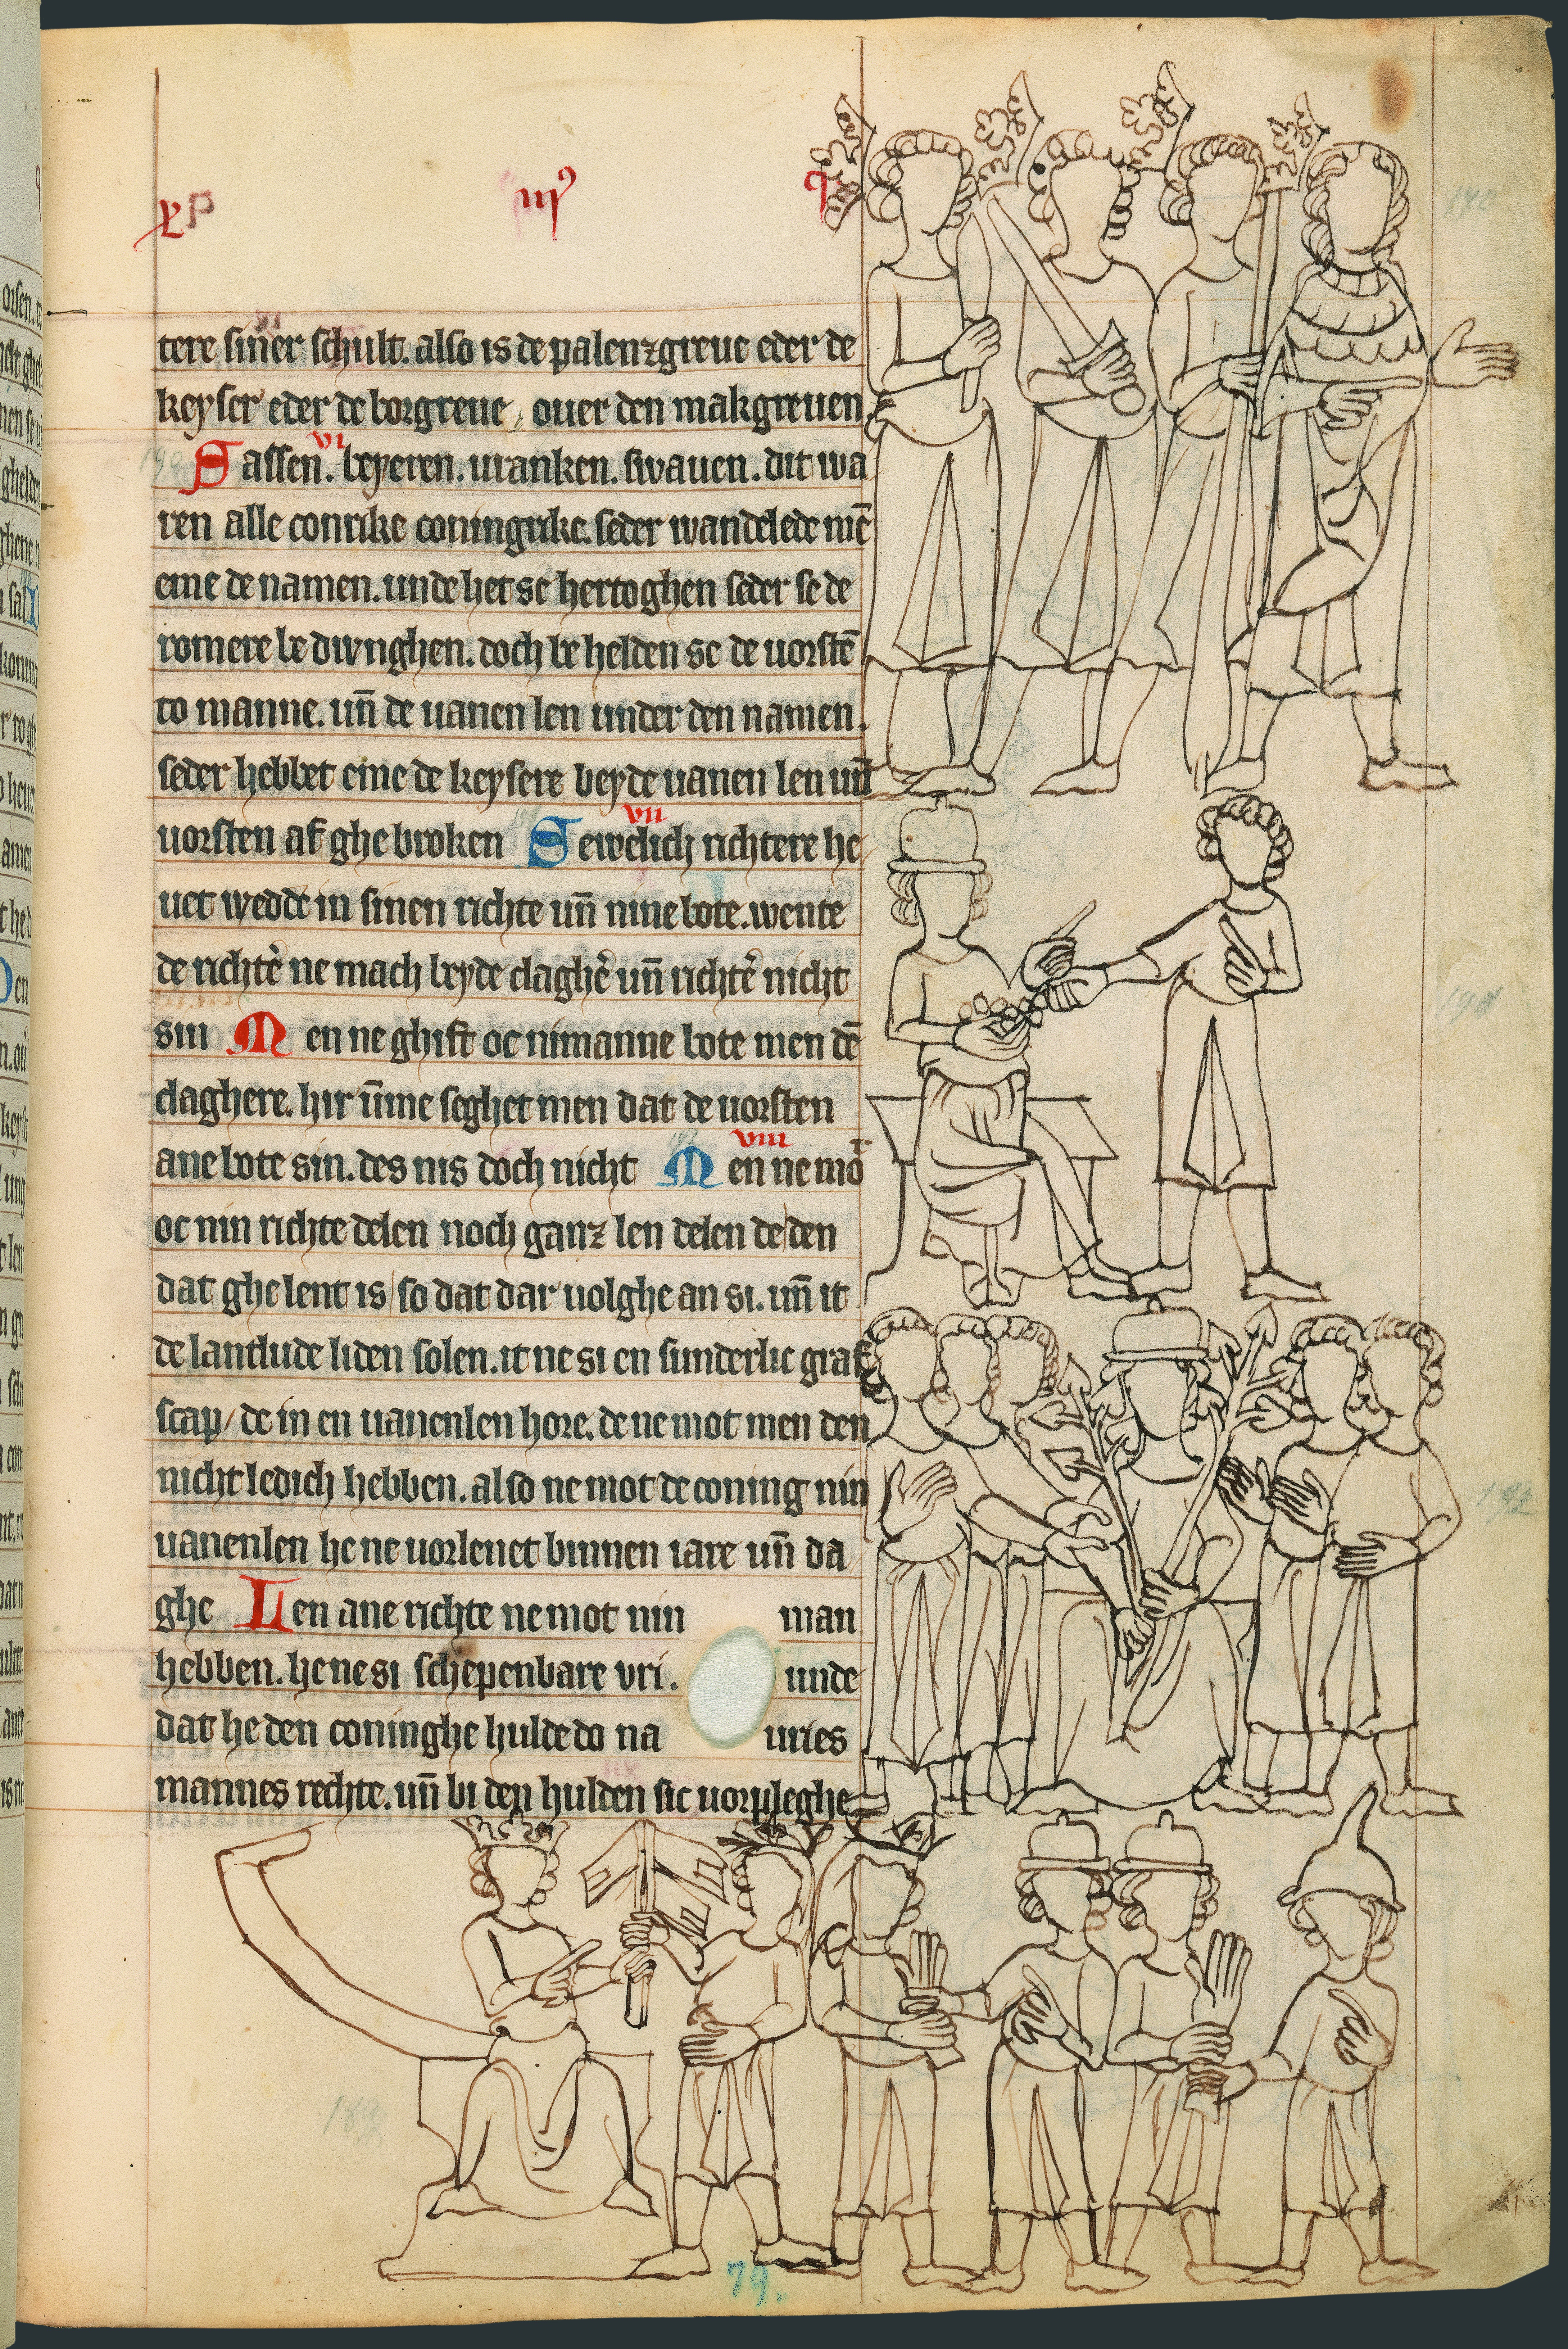 iij⁹
tere siner schult. also is de palenzgreue eder de
keyser eder de borgreue, ouer den makgreuen.
vi
Sassen. beyeren. uranken. swauen. dit wa
ren alle conrike coningrike. seder wandelede mē
eme de namen. unde het se hertoghen seder se de
romere be dwnghen. doch be helden se de uorstē
to manne. uñ de uanen len under den namen.
seder hebbet eme de keysere beyde uanen len uñ
vii
uorsten af ghe broken Sewelich richtere he
uet wedde in sinen richte uñ nine bote. wente
de richtē ne mach beyde claghē uñ richtē nicht
sin Men ne ghift oc nimanne bote men dē
claghere. hir ūme seghet men dat de uorsten
viii
ane bote sin. des nis doch nicht Men ne mot
oc nin richte delen noch ganz len delen de den
dat ghe lent is/ so dat dar uolghe an si. uñ it
de lantlude liden solen. it ne si en sunderlic graf
scap/ de in en uanenlen hore. de ne mot men den
nicht ledich hebben. also ne mot de coning nin
uanenlen he ne uorlenet binnen iare uñ da
ghe Len ane richte ne mot nin man
hebben. he ne si schepenbare vri. unde
dat he den coninghe hulde do na uries
mannes rechte. uñ bi den hulden sic uorpleghe
79.